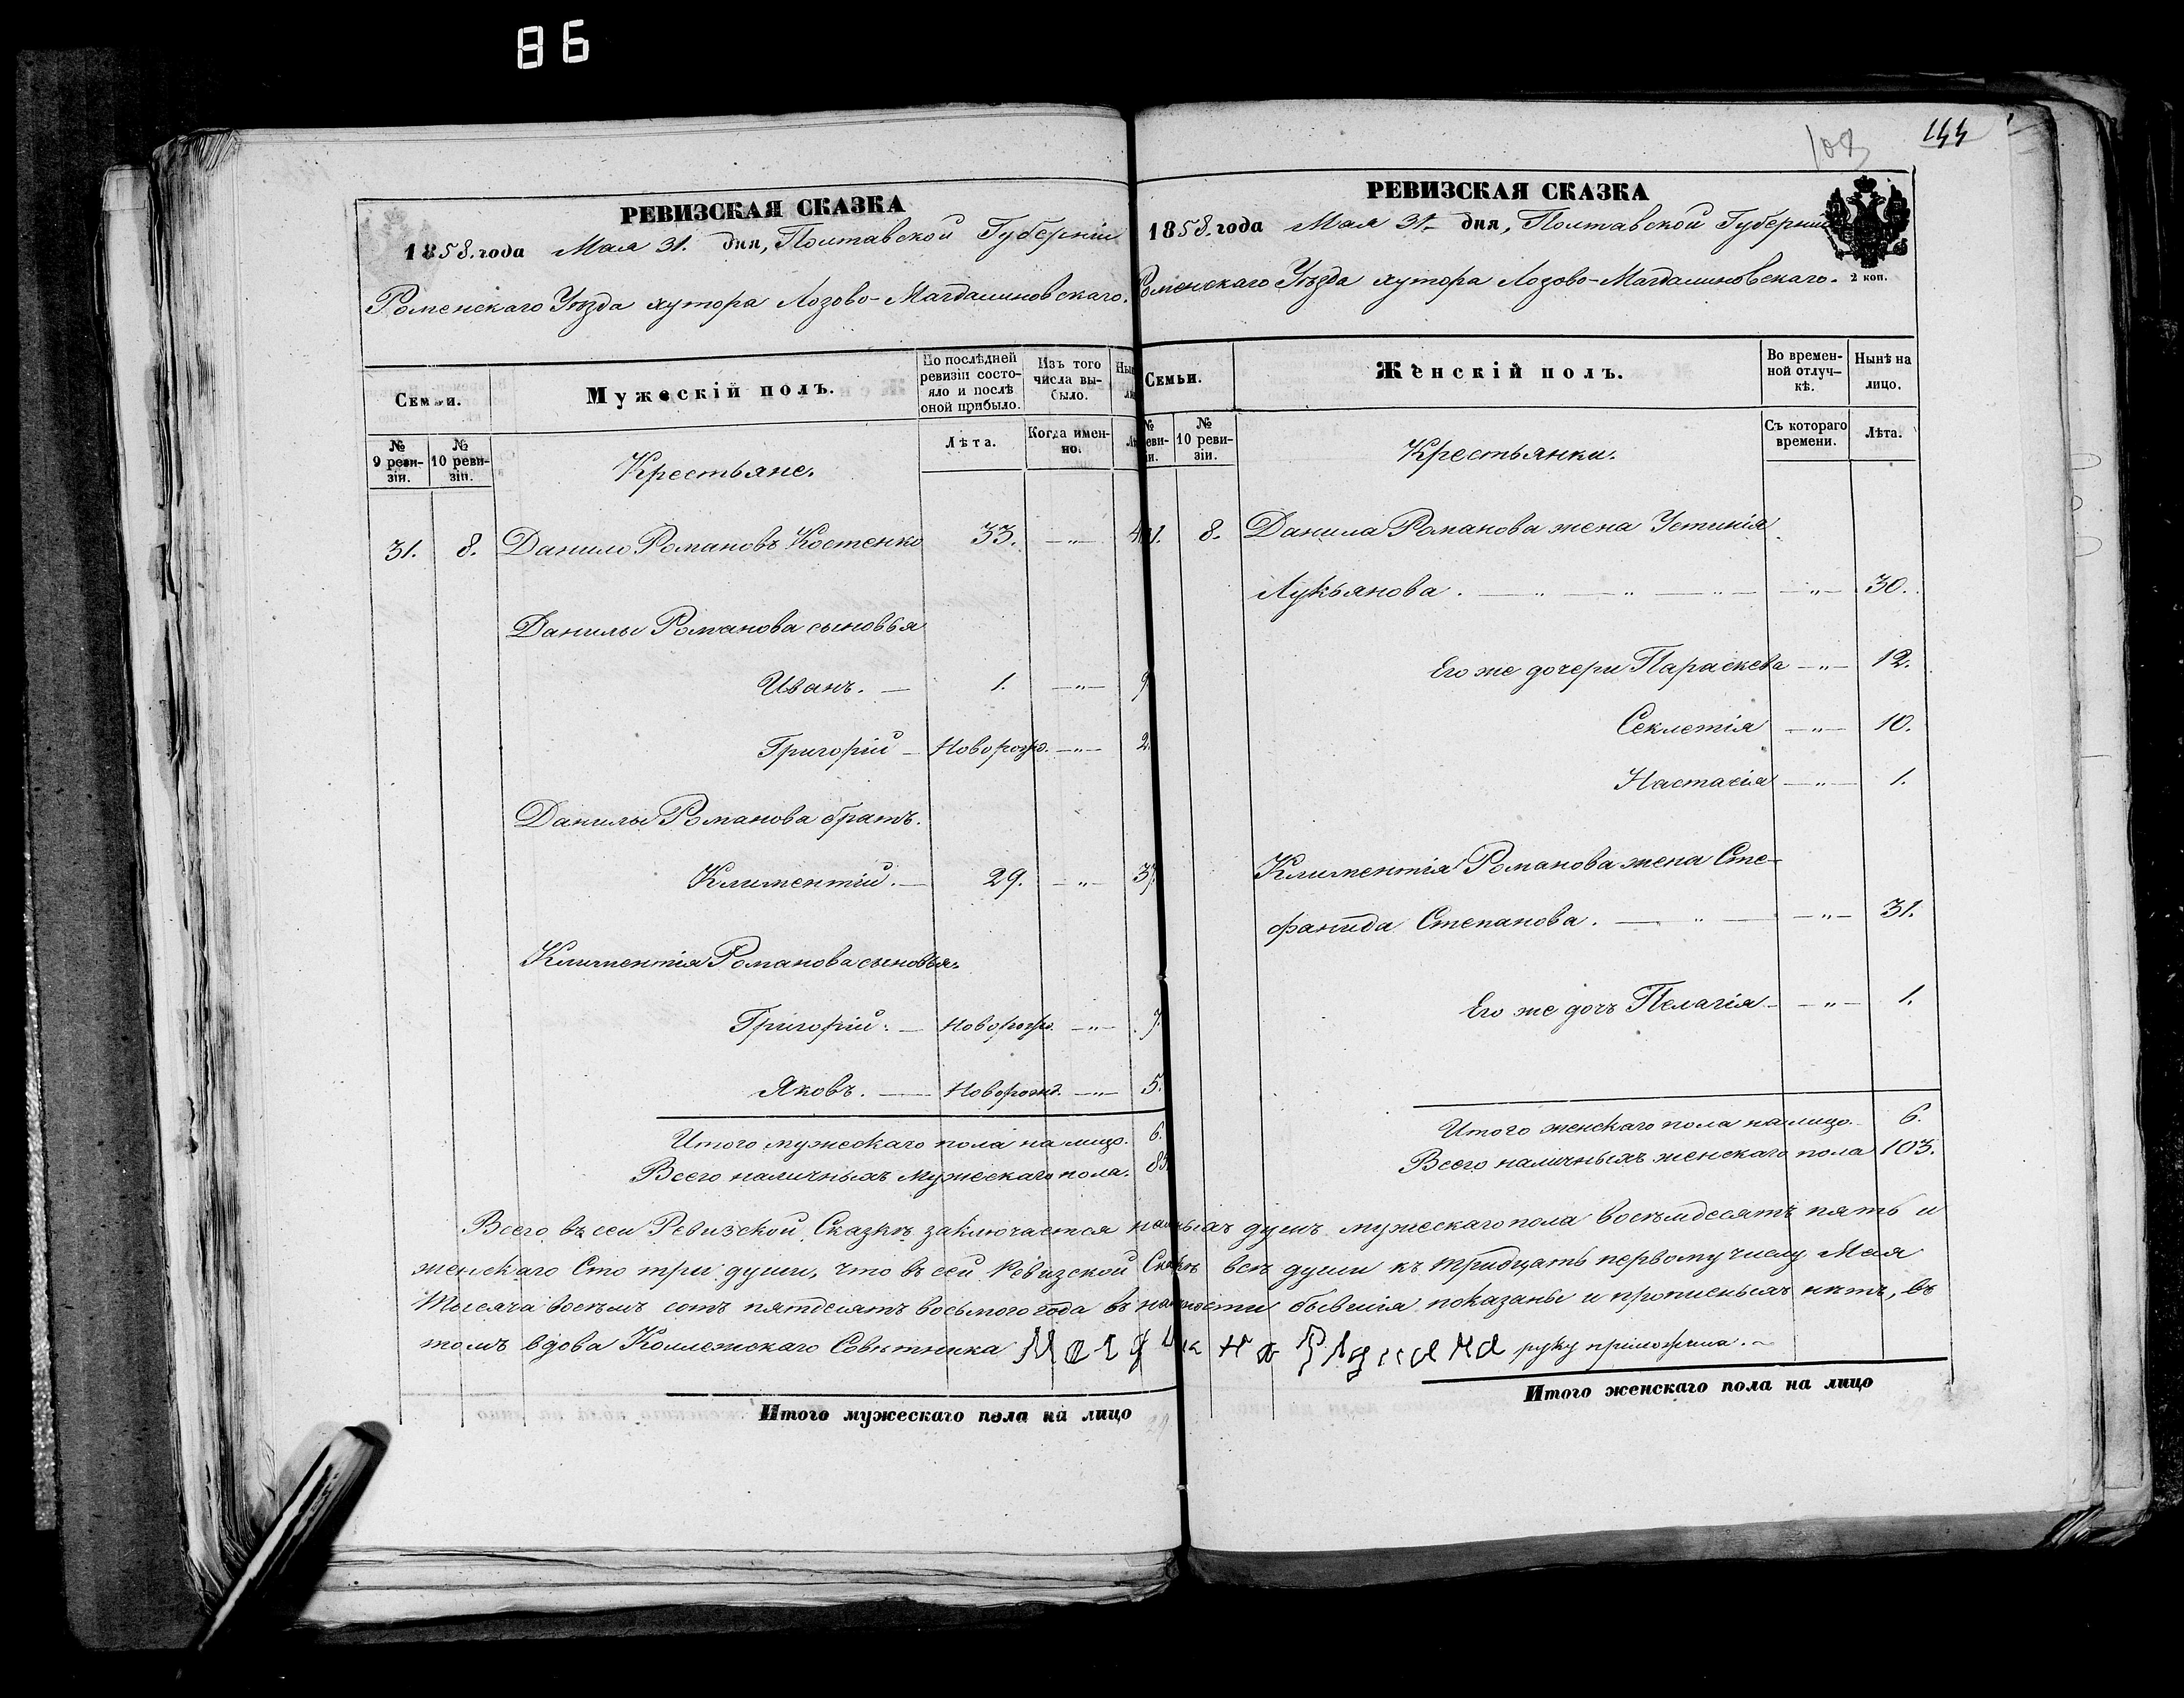 86
РЕВИЗСКАЯ СКАЗКА
1858. года Мая 31. дня, Полтавской Губерніи
Роменскаго Уѣзда хутора Лозово-Магдалиновскаго.
Семьи.
Мужескій полъ.
По послѣдней ревизіи состояло и послѣ оной прибыло.
Изъ того числа выбыло.
№ 9 ревизіи.
№ 10 ревизіи.
Крестьяне.
Лѣта.
Когда именно.
31. 8. Данило Романовъ Костенко 33. —„—
Данилы Романова сыновья
Иванъ. — 1. —„— 9
Григорій — Новорожд. —„— 2.
Данилы Романова братъ.
Климентій. — 29. —„— 37.
Климентія Романова сыновья.
Григорій. — Новорожд. —„— 7.
Яковъ. — Новорожд. —„— 5.
Итого мужескаго пола на лицо. 6.
Всего наличныхъ мужескаго пола. 85.
108
144
РЕВИЗСКАЯ СКАЗКА
1858. года Мая 31. дня, Полтавской Губерніи
Роменскаго Уѣзда хутора Лозово-Магдалиновскаго.
2 коп.
Семьи.
Женскій полъ.
Во временной отлучкѣ.
Нынѣ на лицо.
№ 10 ревизіи.
Крестьянки.
Съ котораго времени.
Лѣта.
8. Данила Романова жена Устинія
Лукьянова. — „ — „ — „ — —„— 30.
Его же дочери Параскева —„— 12.
Секлетія —„— 10.
Настасія —„— 1.
Климентія Романова жена Сте-
фанида Степанова. — „ — —„— 31.
Его же дочь Пелагія —„— 1.
Итого женскаго пола налицо. 6.
Всего наличныхъ женскаго пола 103.
Всего въ сей Ревизской Сказкѣ заключается душъ мужескаго пола восемьдесятъ пять и
женскаго Сто три души, что въ сей Ревизской Сказкѣ всѣ души къ тридцать первому числу Мая
тысяча восемь сотъ пятдесятъ восьмого года въ бывшія показаны и прописныхъ нѣтъ, въ
томъ вдова Коллежскаго Совѣтника руку приложила.
Итого мужескаго пола на лицо
Итого женскаго пола на лицо